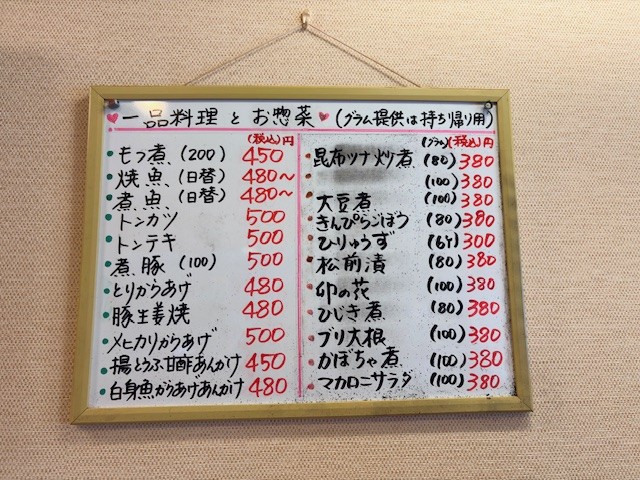 ♥一品料理とお惣菜♥(グラム提供は持ち帰り用)
(税込)円
・もつ煮、(200) 450
・焼魚、(日替) 480〜
・煮魚、(日替) 480〜
・トンカツ 500
・トンテキ 500
・煮豚 (100) 500
・とりからあげ 480
・豚生姜焼 480
・メヒカリからあげ 500
・揚とうふ甘酢あんかけ 450
・白身魚からあげあんかけ 480
(グラム)(税込)円
・昆布ツナ炒煮 (80) 380
・(100) 380
・大豆煮 (100) 380
・きんぴらごぼう (80) 380
・ひりゅうず (6ケ) 300
・松前漬 (80) 380
・卯の花 (100) 380
・ひじき煮 (80) 380
・ブリ大根 (100) 380
・かぼちゃ煮 (100) 380
・マカロニサラダ (100) 380